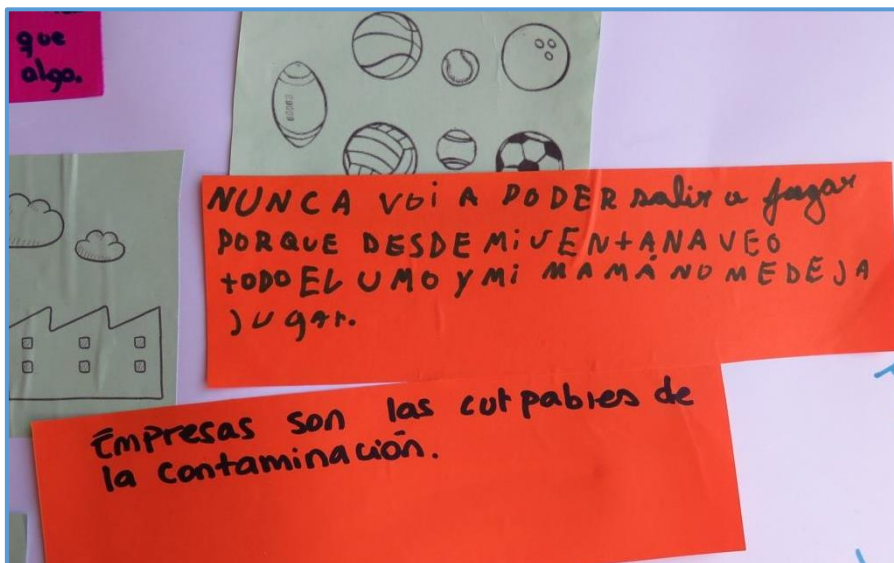 que
algo.
NUNCA VOi A PODER salir a jugar
PORQUE DESDE Mi VENTANA VEO
TODO EL UMO Y Mi MAMÁ NO ME DEJA
JUgar.
Empresas son las culpables de
la contaminación.